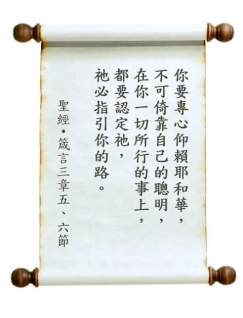 你要專心仰賴耶和華，
不可倚靠自己的聰明，
在你一切所行的事上，
都要認定祂，
祂必指引你的路。
聖經•箴言三章五、六節